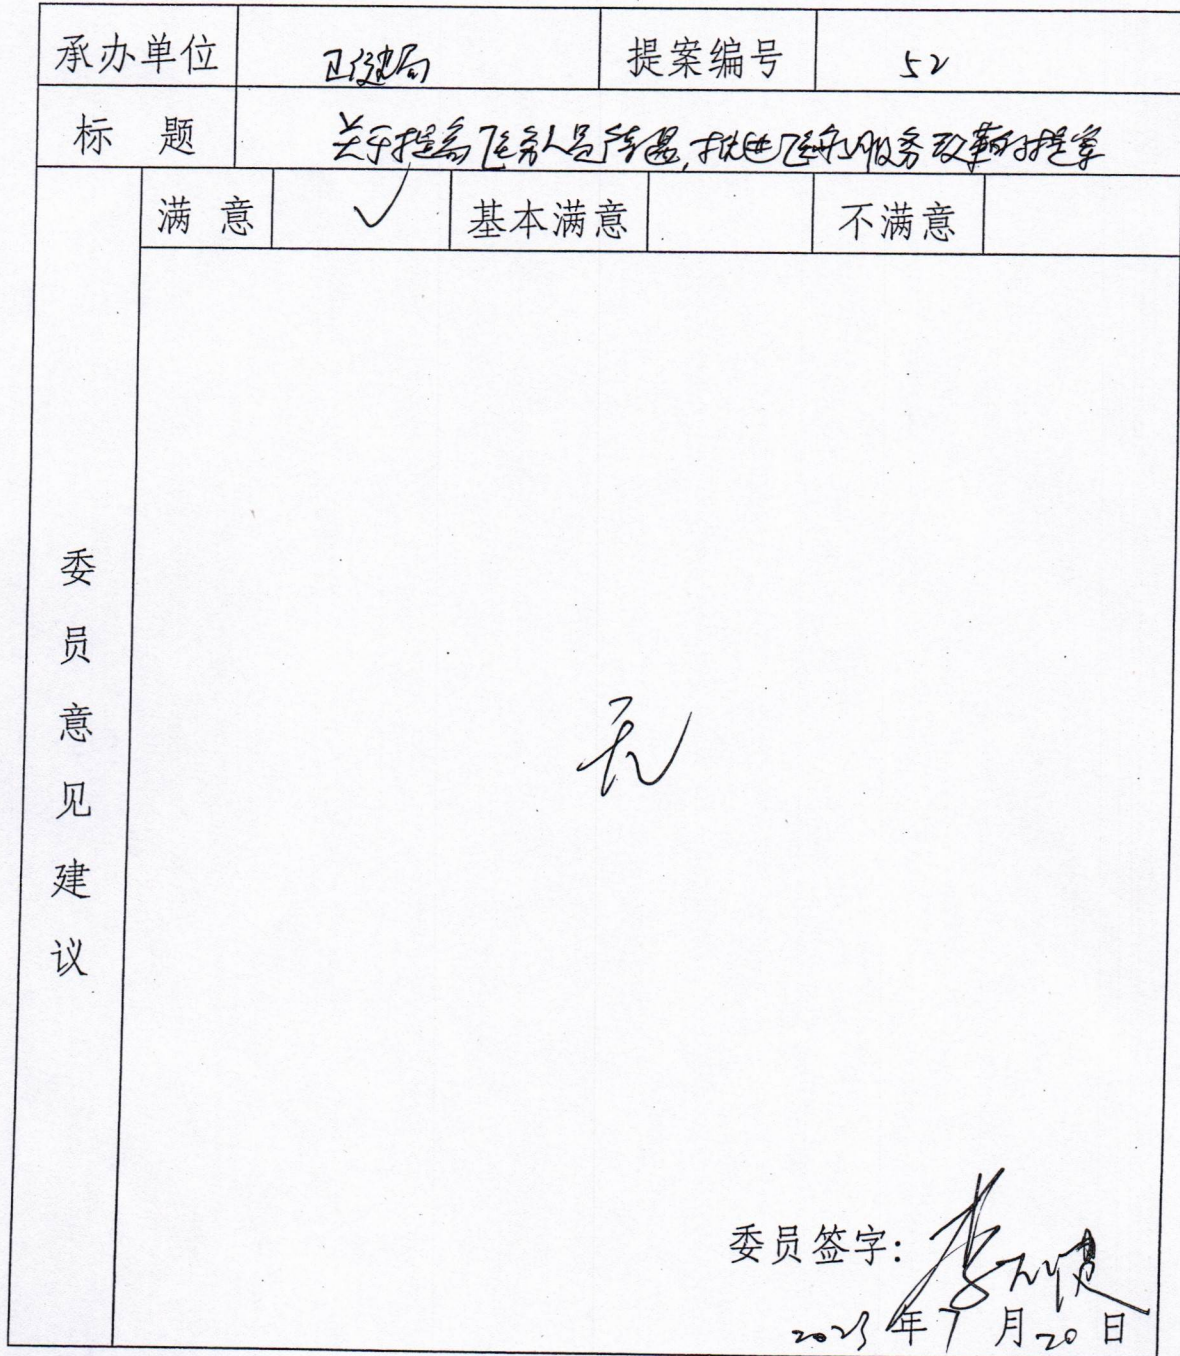 承办单位 卫健局 提案编号 52
标 题 关于提高医务人员待遇,推进医疗服务改革的提案
满 意 ✓ 基本满意 不满意
委员意见建议
无
委员签字: 李
2023年7月20日